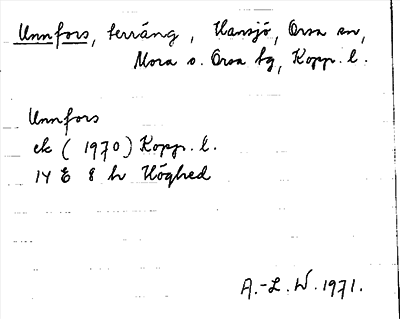 Unnfors, terräng, Hansjö, Orsa sn,
Mora o. Orsa tg, Kopp. l.
Unnfors
ek (1970) Kopp. l.
14 E 8 h Höghed
A.-L. W. 1971.